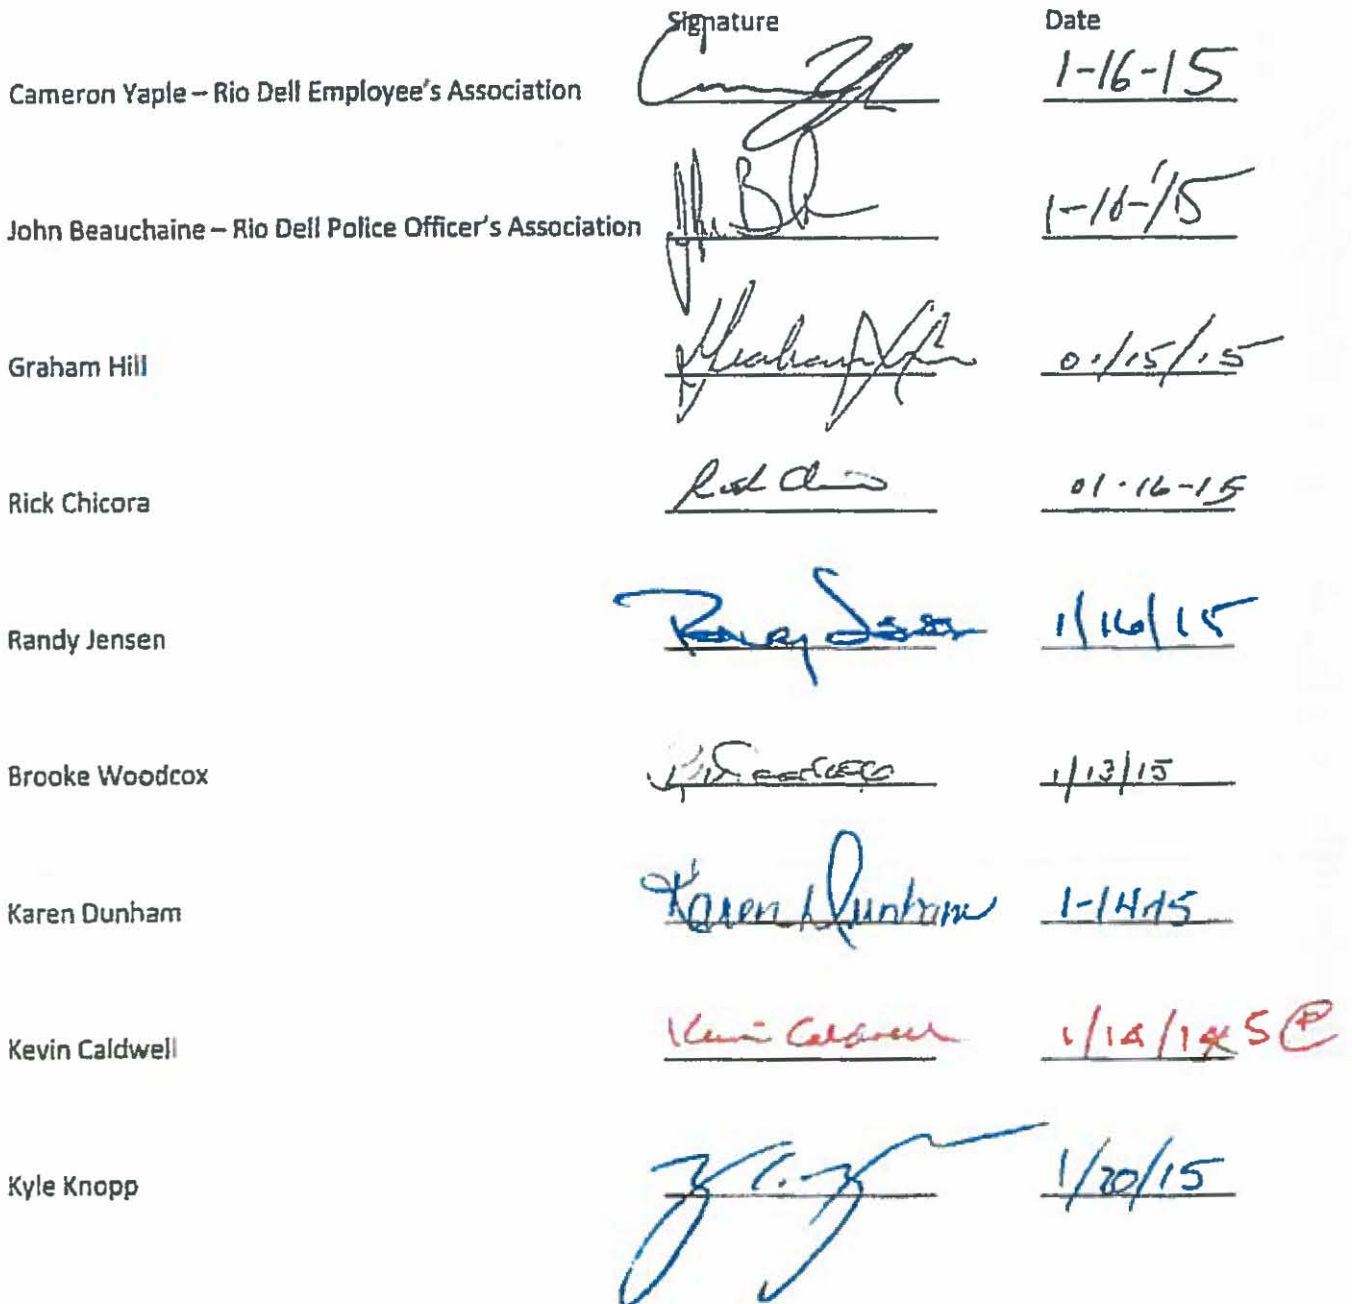 Signature Date
Cameron Yaple – Rio Dell Employee's Association 1-16-15
John Beauchaine – Rio Dell Police Officer's Association
Graham Hill Graham Hill 01/15/15
Rick Chicora 01-16-15
Randy Jensen Randy Jensen 1/16/15
Brooke Woodcox 1/13/15
Karen Dunham Karen Dunham 1-14-15
Kevin Caldwell Kevin Caldwell
Kyle Knopp 1/20/15